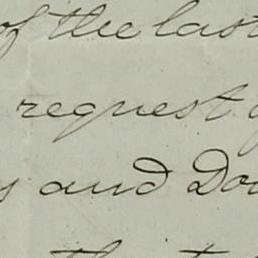 of the last
request
and Do